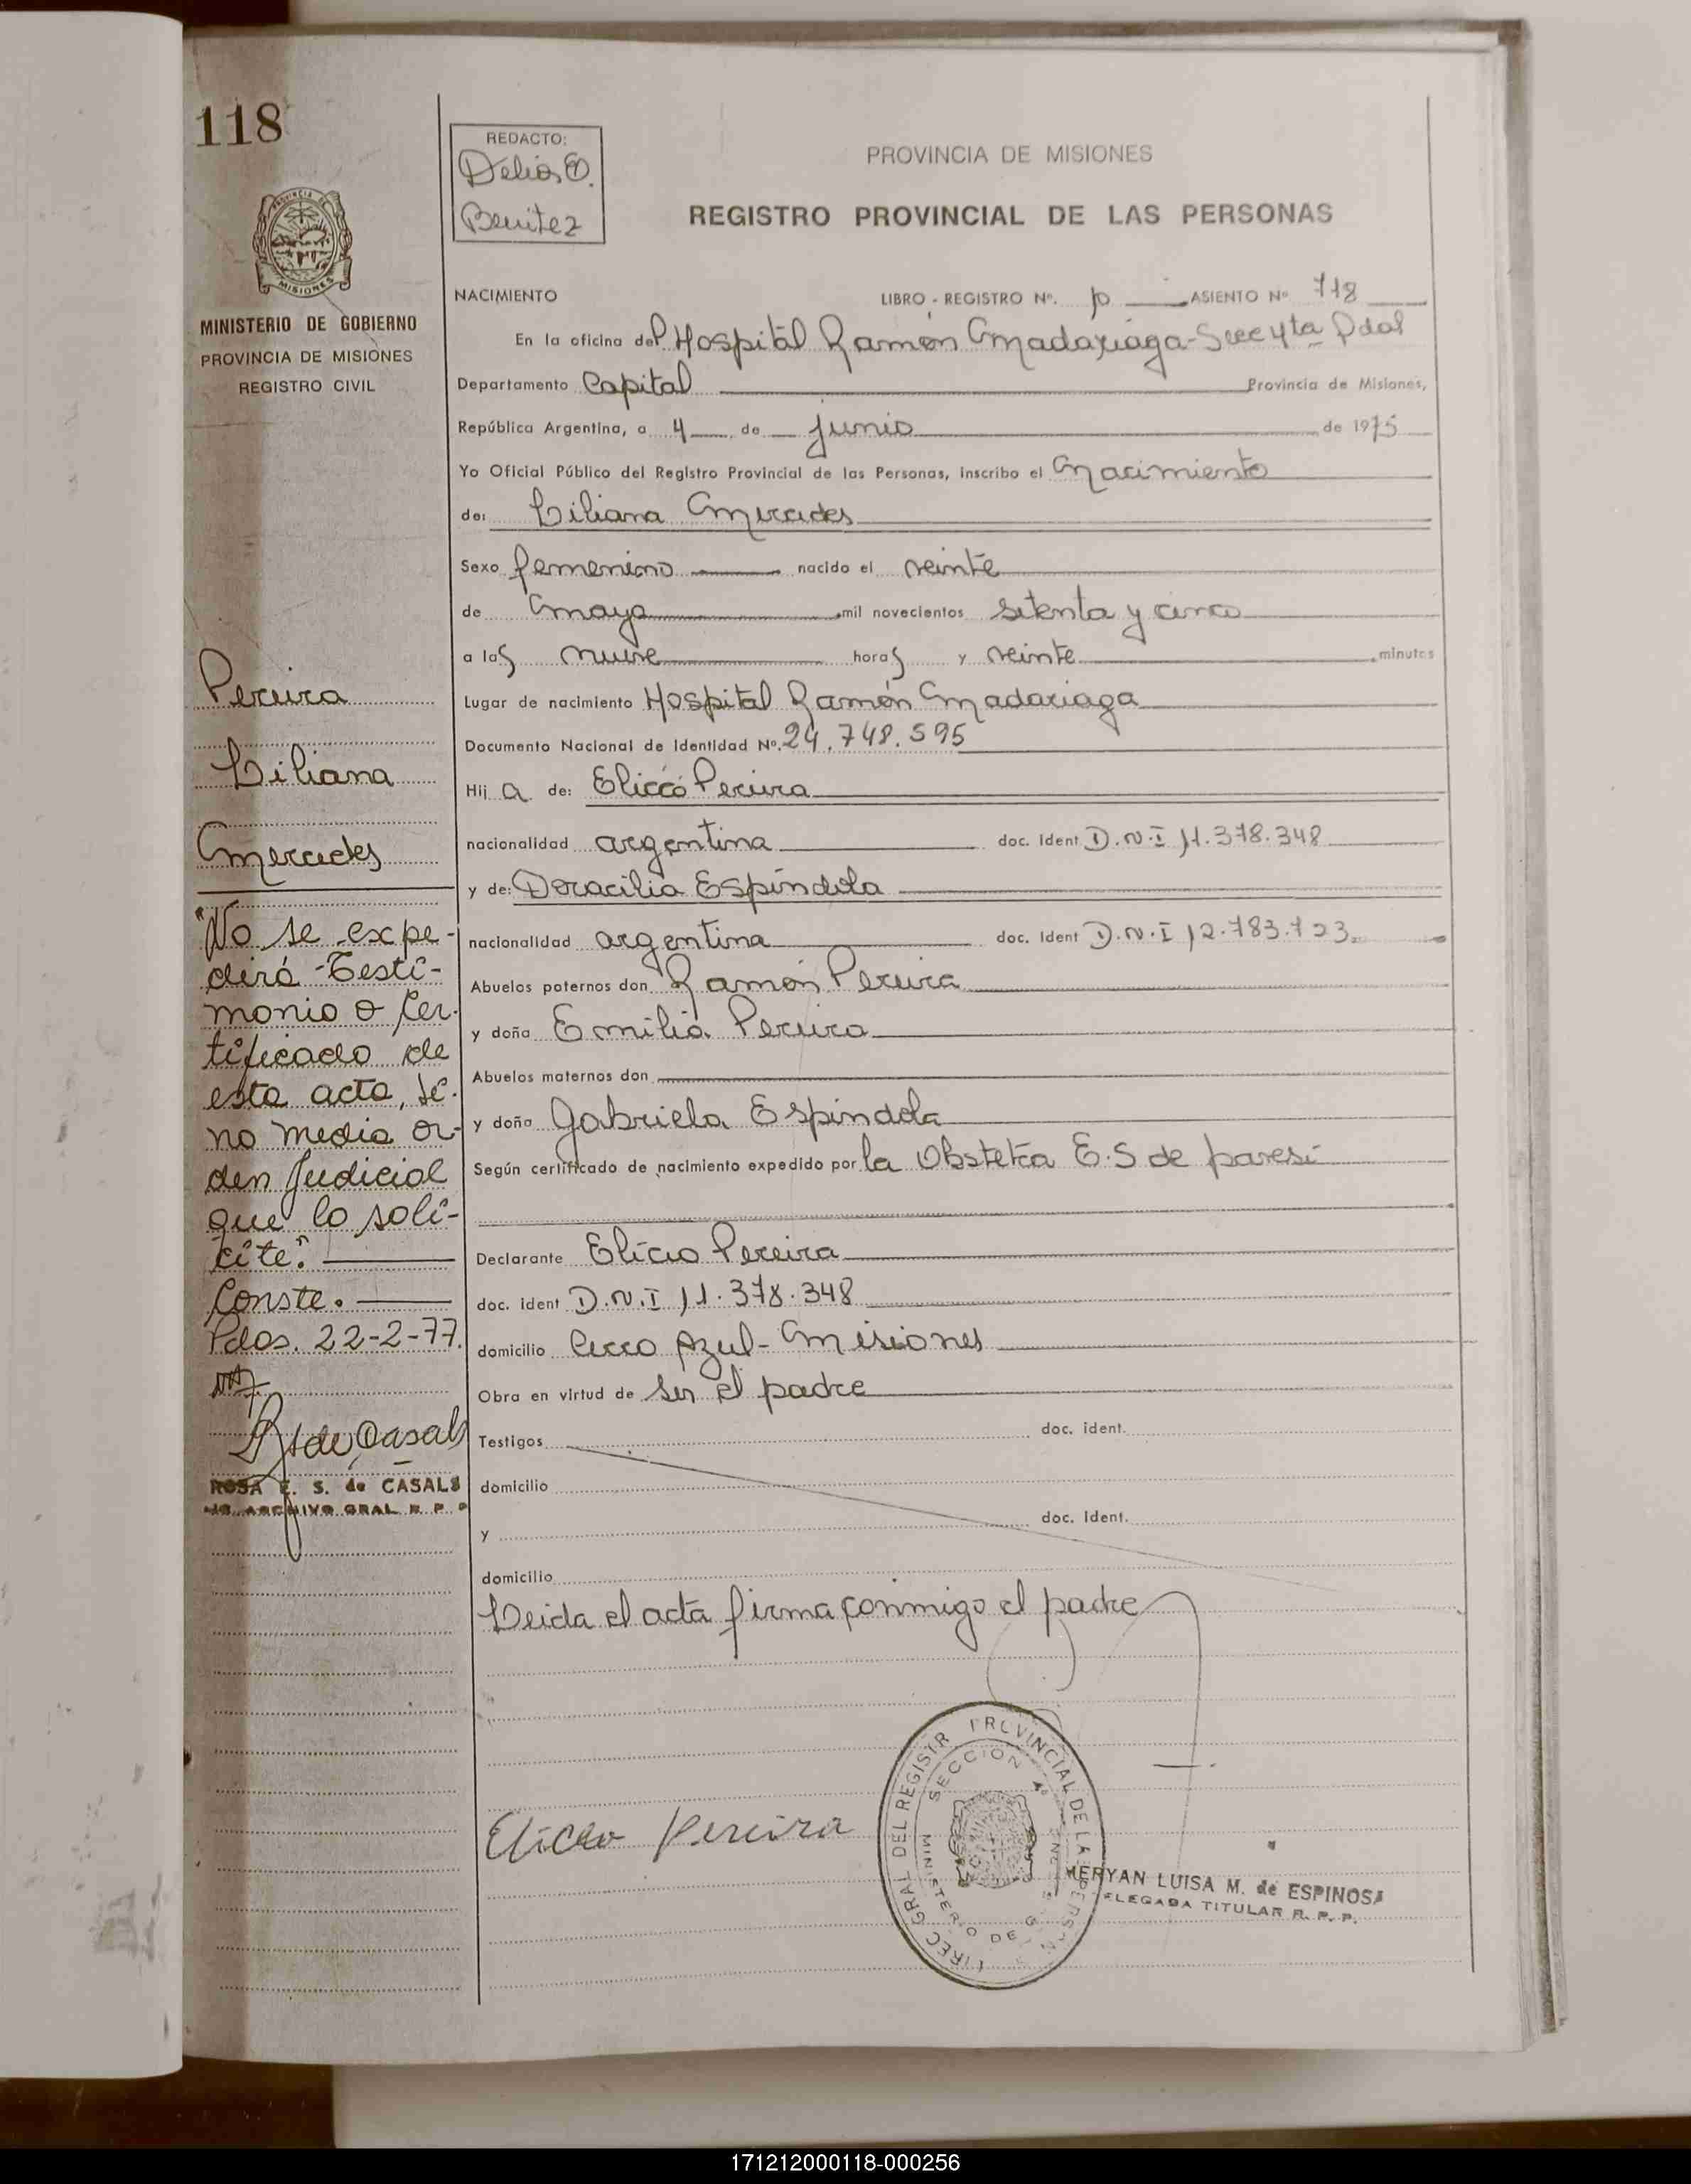 118
REDACTO:
Delia O.
Benitez
PROVINCIA DE MISIONES
REGISTRO PROVINCIAL DE LAS PERSONAS
MISIONES
MINISTERIO DE GOBIERNO
PROVINCIA DE MISIONES
REGISTRO CIVIL
NACIMIENTO LIBRO - REGISTRO Nº. ASIENTO Nº 718
En la oficina del Hospital Ramón Madariaga - Secc 4ta Pdas
Departamento Capital Provincia de Misiones,
República Argentina, a 4 de junio de 1975
Yo Oficial Público del Registro Provincial de las Personas, inscribo el Nacimiento
de: Liliana Mercedes
Sexo femenino nacido el veinte
de mayo mil novecientos setenta y cinco
a las nueve horas y veinte minutos
Lugar de nacimiento Hospital Ramón Madariaga
Documento Nacional de Identidad Nº. 24.748.595
Hij a de: Elicio Pereira
nacionalidad argentina doc. Ident D.N.I 11.378.348
y de: Doracilia Espindola
nacionalidad argentina doc. Ident D.N.I 12.783.723
Abuelos paternos don Ramón Pereira
y doña Emilia Pereira
Abuelos maternos don
y doña Gabriela Espindola
Según certificado de nacimiento expedido por la Obstetra E.S de paresi
Declarante Elicio Pereira
doc. ident D.N.I 11.378.348
domicilio Cerro Azul - Misiones
Obra en virtud de ser el padre
Testigos doc. ident.
domicilio
y doc. Ident.
domicilio
Leida el acta firma conmigo el padre
Pereira
Liliana
Mercedes
"No se expe-
dirá Testi-
monio o Cer-
tificado de
esta acta, si-
no media or-
den Judicial
que lo soli-
cite".
Conste.
Pdas. 22-2-77.
R S de Casals
ROSA E. S. de CASALS
ARCHIVO GRAL R. P. P
Elicio Pereira
DIREC GRAL DEL REGISTR PROVINCIAL DE LAS PERSON
SECCION 4ª
MINISTERIO DE
MERYAN LUISA M. de ESPINOSA
DELEGADA TITULAR R. P. P.
171212000118-000256